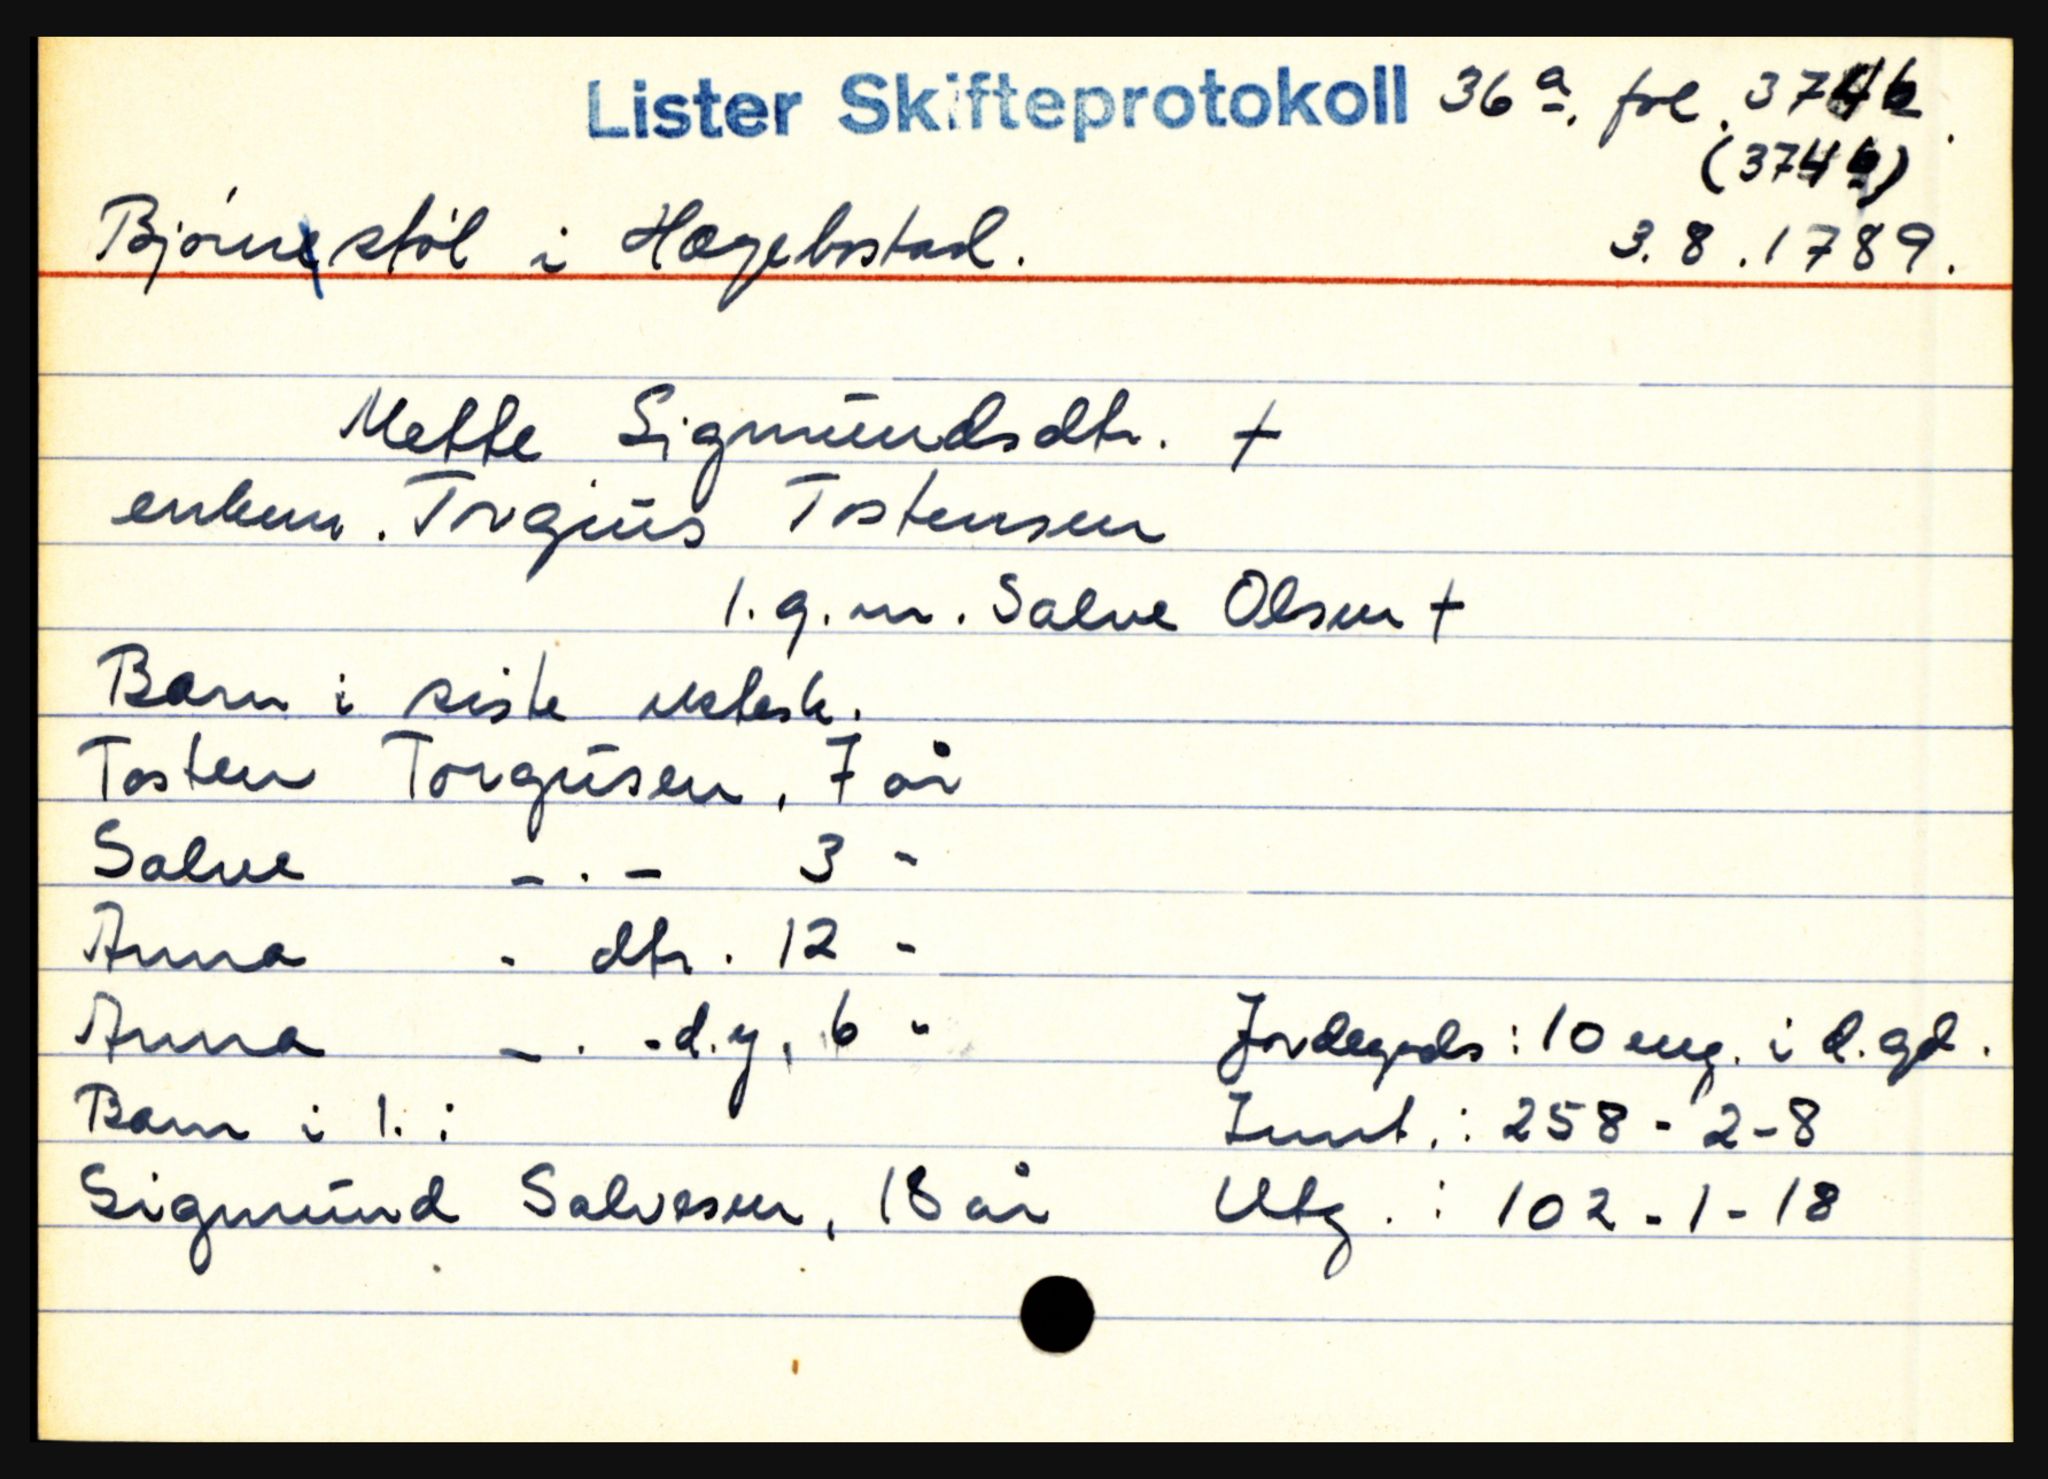 Lister Skifteprotokoll 36a, fol. 374b.
(374b)
Bjørnestøl i Hægebostad. 3.8.1789.
Mette Sigmundsdtr. +
enkem. Torgius Tostensen
1. g. m. Salve Olsen +
Barn i siste ektesk.
Tosten Torgiusen, 7 år
Salve — . — 3 -
Anna - dtr. 12 -
Anna — . - d.y, 6 " Jordegods: 10 eng. i d. gd.
Barn i 1. : Innt. : 258 - 2 - 8
Sigmund Salvesen, 18 år Utg. : 102 - 1 - 18